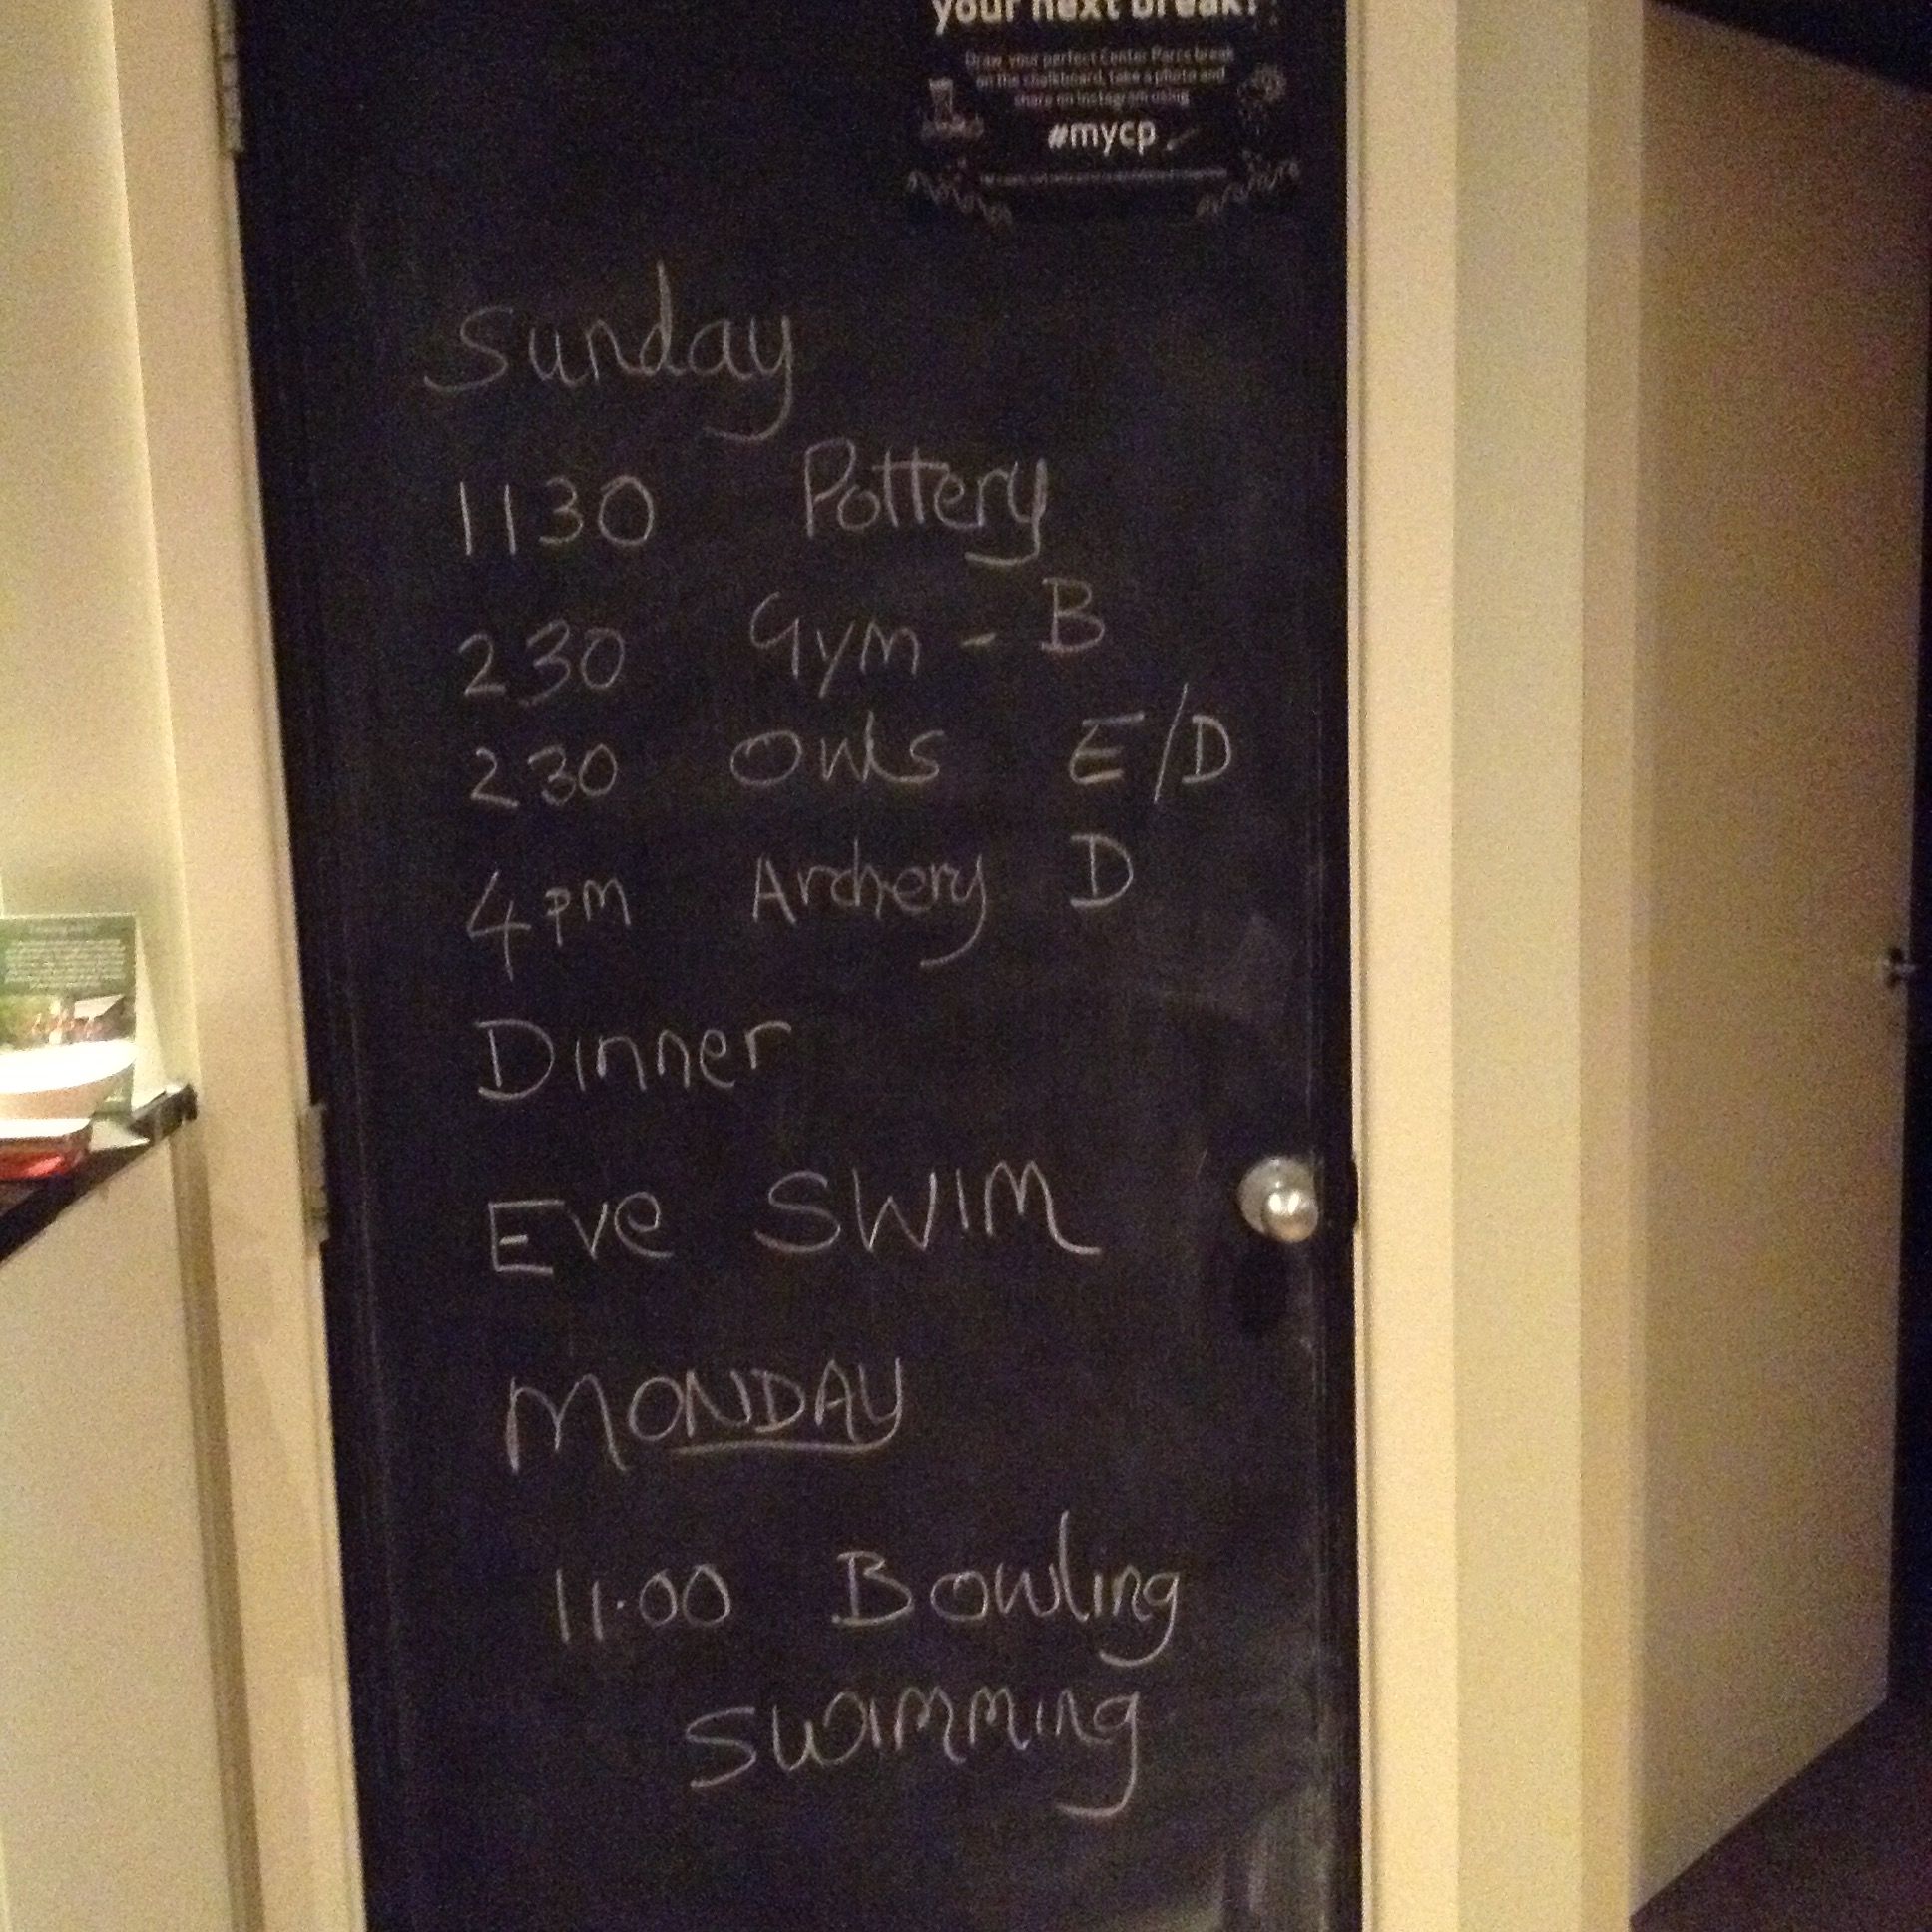 your next break!
Draw your perfect Center Parcs break
on the chalkboard, take a photo and
share on Instagram using
#mycp
Sunday
1130 Pottery
230 Gym - B
230 Owls E/D
4pm Archery D
Dinner
Eve SWIM
MONDAY
11.00 Bowling
Swimming